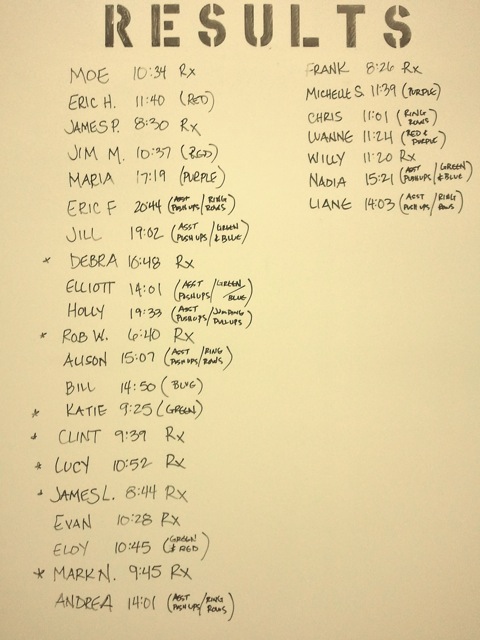 RESULTS
MOE 10:34 Rx
ERIC H. 11:40 (RED)
JAMES P. 8:30 Rx
JIM M. 10:37 (RED)
MARIA 17:19 (PURPLE)
ERIC F 20:44 (ASST PUSHUPS/RING ROWS)
JILL 19:02 (ASST PUSHUPS/GREEN & BLUE)
* DEBRA 16:48 Rx
ELLIOTT 14:01 (ASST PUSHUPS/GREEN/BLUE)
HOLLY 19:33 (ASST PUSHUPS/JUMPING PULLUPS)
* ROB W. 6:40 Rx
ALISON 15:07 (ASST PUSHUPS/RING ROWS)
BILL 14:50 (BLUE)
* KATIE 9:25 (GREEN)
* CLINT 9:39 Rx
* LUCY 10:52 Rx
* JAMES L. 8:44 Rx
EVAN 10:28 Rx
ELOY 10:45 (GREEN & RED)
* MARK N. 9:45 Rx
ANDREA 14:01 (ASST PUSHUPS/RING ROWS)
FRANK 8:26 Rx
MICHELLE S. 11:39 (PURPLE)
CHRIS 11:01 (RING ROWS)
LUANNE 11:24 (RED & PURPLE)
WILLY 11:20 Rx
NADIA 15:21 (ASST PUSHUPS/GREEN & BLUE)
LIANE 14:03 (ASST PUSHUPS/RING ROWS)